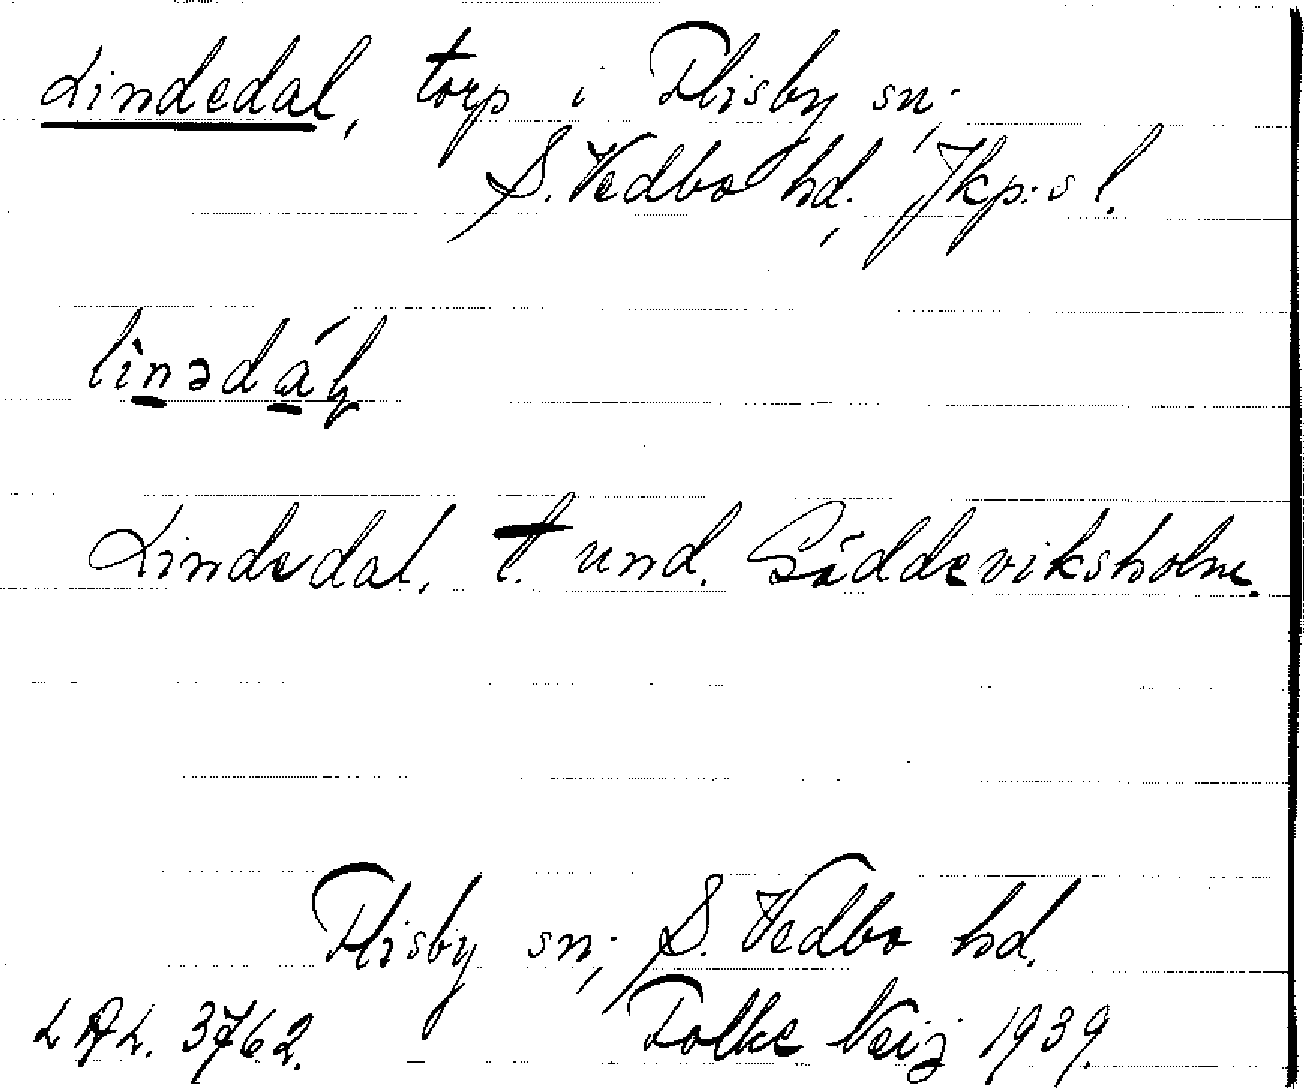 Lindedal, torp i Flisby sn.,
S. Vedbo hd., Jkp:s l.
lìnədáɫ
Lindedal. t. und. Gäddeviksholm.
Flisby sn., S. Vedbo hd.
LAL. 3762. Folke Neij 1939.